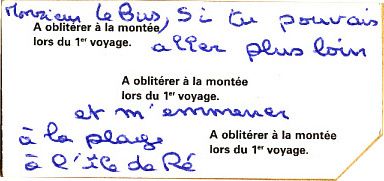 Monsieur le Bus, si tu pouvais
A oblitérer à la montée
lors du 1er voyage.
aller plus loin
A oblitérer à la montée
lors du 1er voyage.
et m'emmener
à la plage
A oblitérer à la montée
lors du 1er voyage.
à l'île de Ré